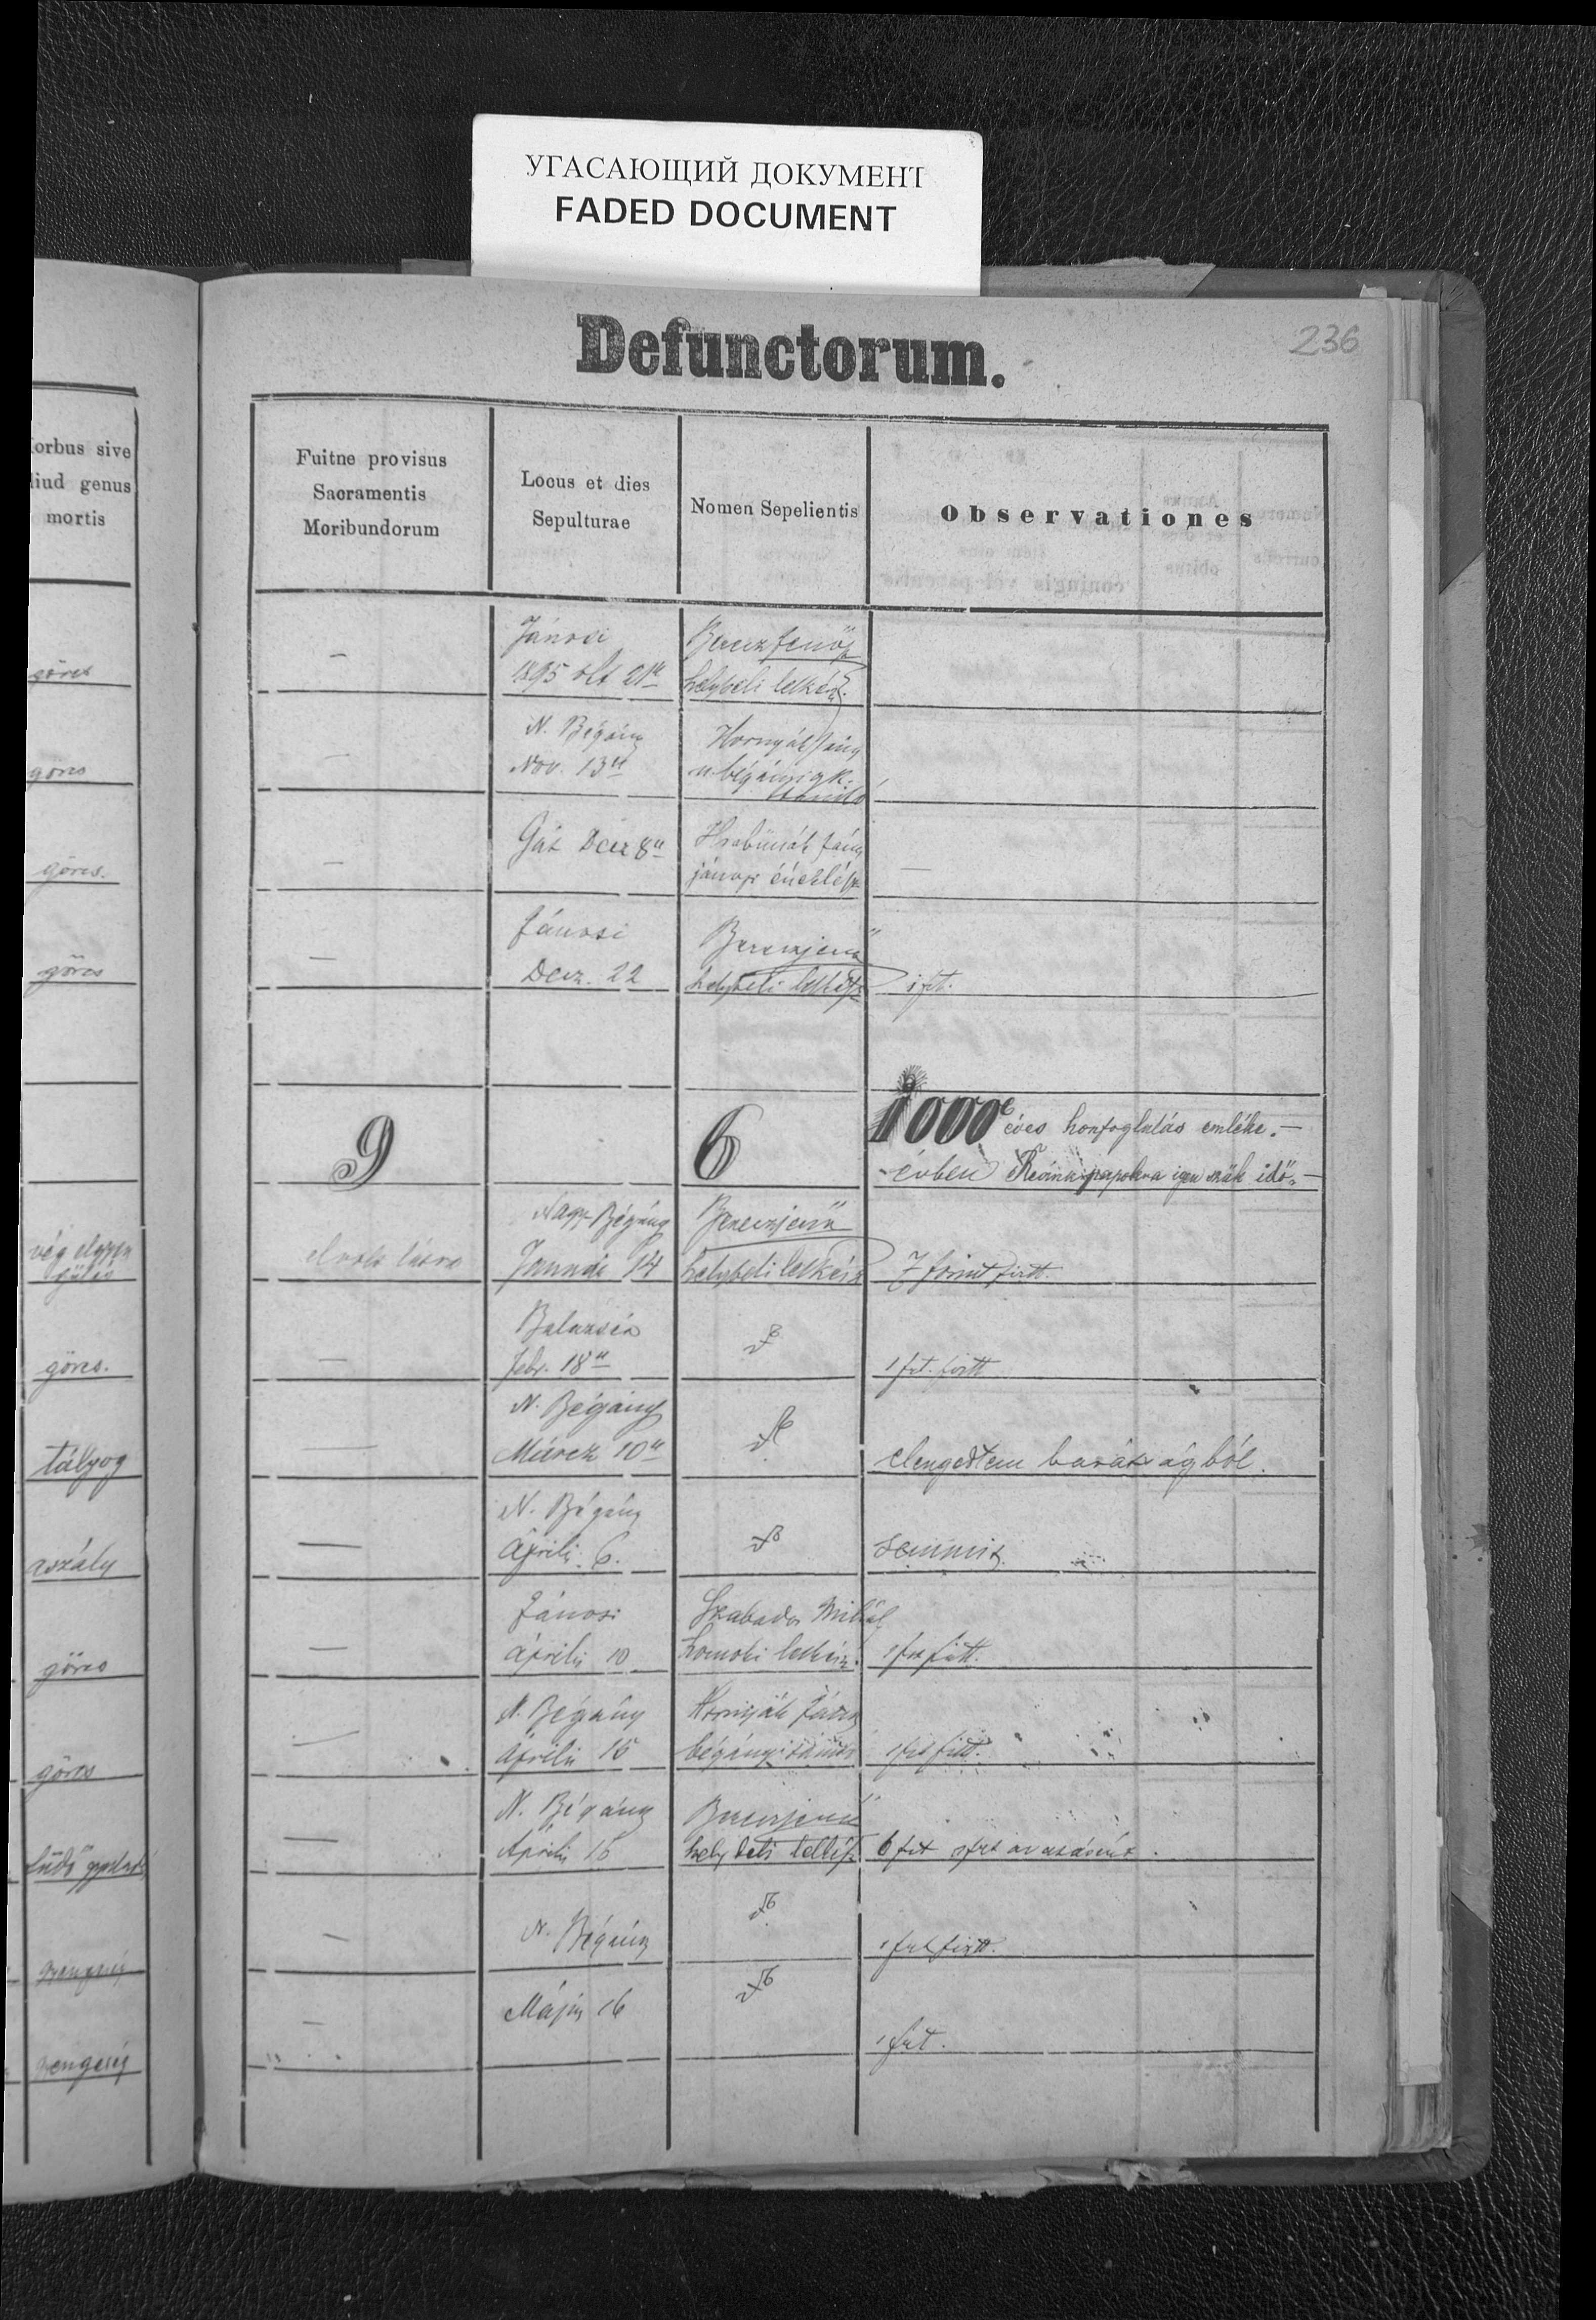 УГАСАЮЩИЙ ДОКУМЕНТ
FADED DOCUMENT
Defunctorum.
236
orbus sive
liud genus
mortis
Fuitne provisus
Sacramentis
Moribundorum
Locus et dies
Sepulturae
Nomen Sepelientis
Observationes
göres
—
Jánosi
1895 okt 21ª
Berecz Jenő
helybeli lelkész.
göres
—
N. Bégány
Nov. 13ª
Hornyák János
n. bégányi gk.
tanító
göres.
—
Gát Decz 8ª
János
jánosi éneklész
—
göres
—
Jánosi
Decz. 22
Berecz jenő
helybeli lelkész
1 frt.
9
6
1000 éves honfoglalás emléke.—
évben papokra igen szűk idő.—
vég elgyen
gülés
Nagy Bégány
Január 14
Berecz jenő
helybeli lelkész
7 forint fizett.
göres.
—
Balazsér
Febr. 18ª
1 frt. fizett
tályog
—
N. Bégány
Márcz 10ª
elengedtem barátságból.
aszály
—
N. Bégány
Április 6.
semmit
göres
—
Jánosi
április 10
Szabados Mihály
homoki lelkész.
1 frt fizett.
göres
—
N. Bégány
április 15
Hornyák János
bégányi tanító
1 frt fizett.
—
N. Bégány
Április 15
Berecz jenő
helybeli lelkész
6 frt
—
N. Bégány
1 frt fizett.
gyengeség
—
Május 16
1 frt.
gyengeség